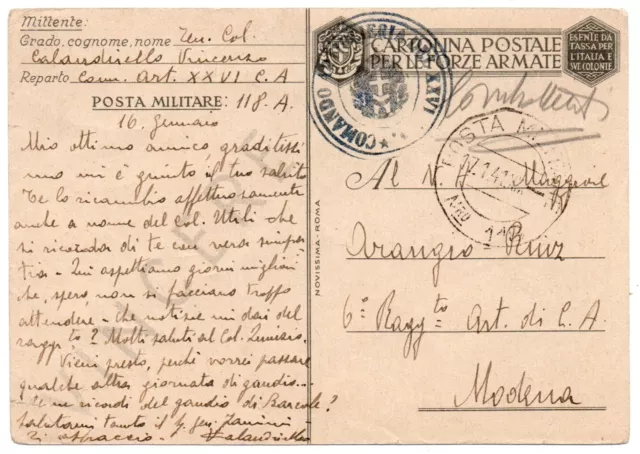 Mittente:
Grado, cognome, nome Ten. Col.
Calandriello Vincenzo
Reparto Com. Art. XXVI C.A
POSTA MILITARE: 118.A.
16. Gennaio
Mio ottimo amico, graditissi
mo mi è giunto il tuo saluto
Te lo ricambio affettuosamente
anche a nome del Col. Utili che
si ricorda di te con vera simpa
tia. Qui aspettiamo giorni migliori
che, spero, non si facciano troppo
attendere. Che notizie mi dai del
ragg.to? Molti saluti al Col.
Vieni presto, perché vorrei passare
qualche altra giornata di gaudio...
Te ne ricordi del gaudio di
Salutami tanto il
Ti abbraccio. Calandriello
VINCERE
CARTOLINA POSTALE
PER LE FORZE ARMATE
ESENTE DA
TASSA PER
L'ITALIA E
LE COLONIE
COMANDO ARTIGLIERIA XXVI
POSTA MILITARE
17.1.41
NRO
Al N. H. Maggiore
Arangio Ruiz
6° Ragg.to Art. di C. A.
Modena
NOVISSIMA - ROMA